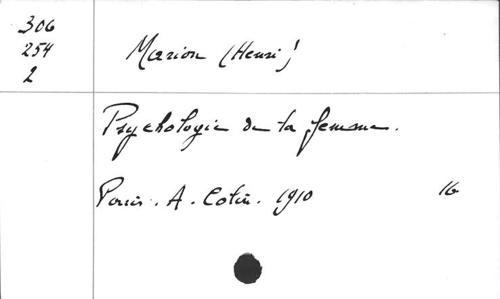 306
254
2
Marion (Henri)
Psychologie de la femme.
Paris. A. Colin. 1910 16